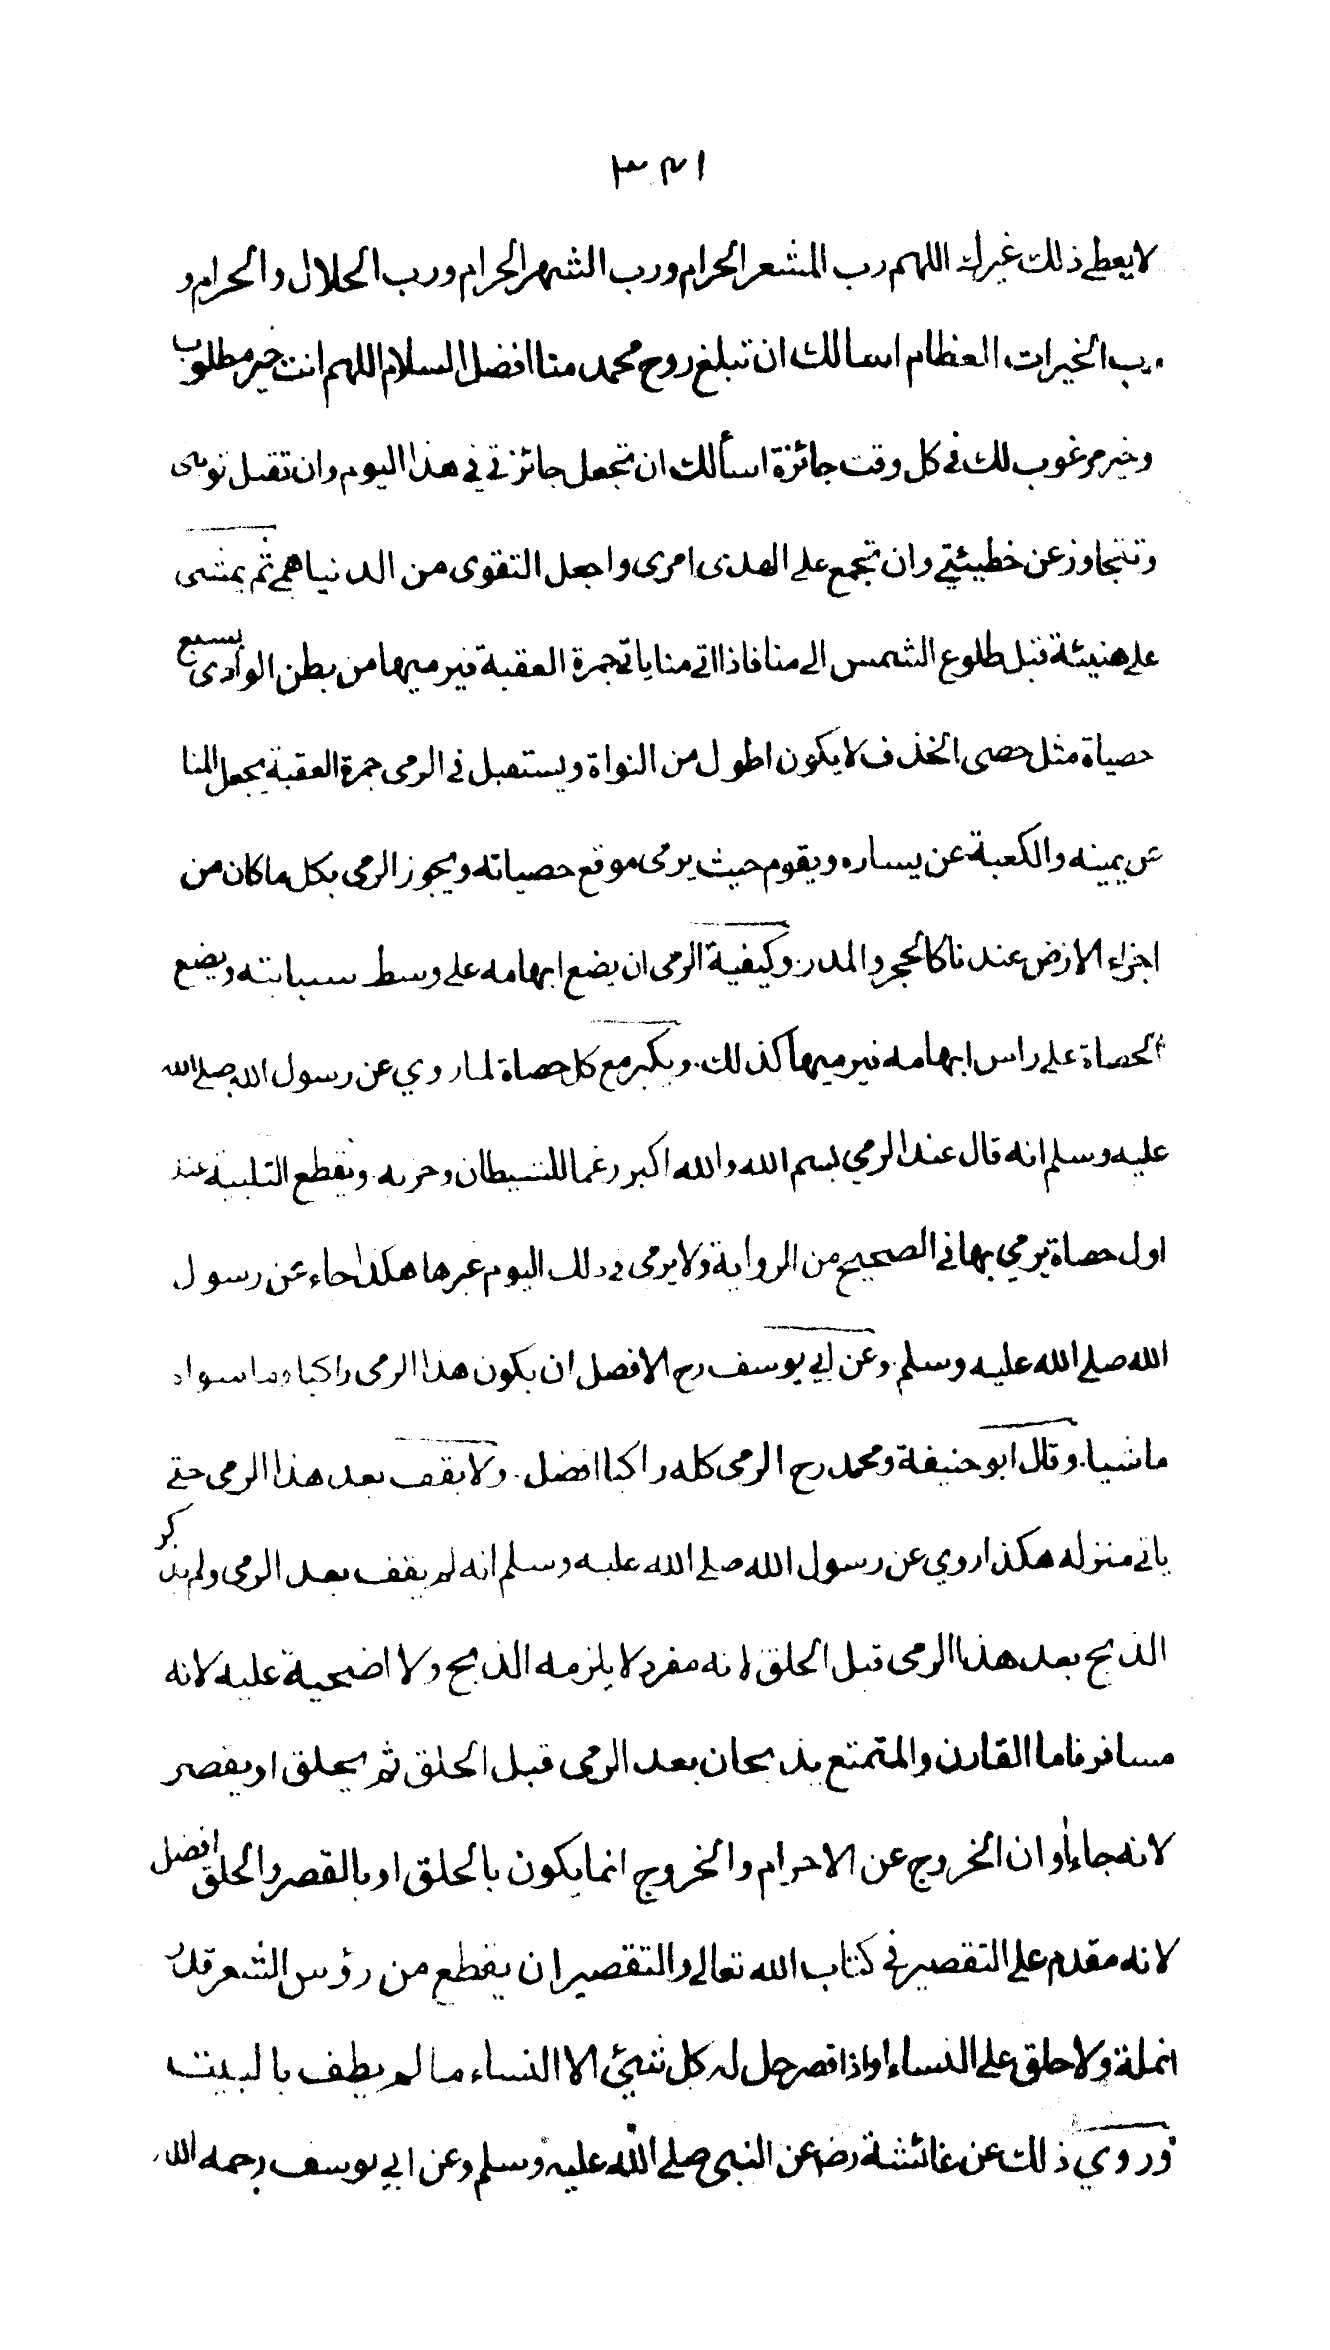 ٣٤١
لا يعطى ذلك غيرك اللهم رب المشعر الحرام ورب الشهر الحرام ورب الحلال والحرام و
رب الخيرات العظام اسالك ان تبلغ روح محمد منا افضل السلام اللهم انت خير مطلوب
وخير مرغوب لك في كل وقت جائزة اسألك ان تجعل جائزتي في هذا اليوم وان تقبل توبتى
وتتجاوز عن خطيئتي وان تجمع على الهدى امرى واجعل التقوى من الدنيا همي ثم يمشى
على هنيئة قبل طلوع الشمس الى منا فاذا اتى منا ياتى جمرة العقبة فيرميها من بطن الوادى بسبع
حصياة مثل حصى الخذف لا يكون اطول من النواة ويستقبل في الرمى جمرة العقبة يجعل المنا
عن يمينه والكعبة عن يساره ويقوم حيث يرمى موقع حصياته ويجوز الرمى بكل ما كان من
اجزاء الارض عندنا كالحجر والمدر وكيفية الرمى ان يضع ابهامه على وسط سبابته ويضع
الحصاة على راس ابهامه فيرميها كذلك ويكبر مع كل حصاة لما روي عن رسول الله صلى الله
عليه وسلم انه قال عند الرمي بسم الله والله اكبر رغما للشيطان وحزبه ويقطع التلبية عند
اول حصاة يرمي بها في الصحيح من الرواية ولا يرمى في ذلك اليوم غيرها هكذا جاء عن رسول
الله صلى الله عليه وسلم وعن ابي يوسف رح الافضل ان يكون هذا الرمى راكبا وما سواه
ماشيا وقال ابو حنيفة ومحمد رح الرمى كله راكبا افضل ولا يقف بعد هذا الرمى حتى
ياتى منزله هكذا روي عن رسول الله صلى الله عليه وسلم انه لم يقف بعد الرمى ولم يذكر
الذبح بعد هذا الرمى قبل الحلق لانه مفرد لا يلزمه الذبح ولا اضحية عليه لانه
مسافر فاما القارن والمتمتع يذبحان بعد الرمى قبل الحلق ثم يحلق او يقصر
لانه جاء أوان الخروج عن الاحرام والخروج انما يكون بالحلق او بالقصر والحلق افضل
لانه مقدم على التقصير في كتاب الله تعالى والتقصير ان يقطع من رؤس الشعر قدر
انملة ولا حلق على النساء واذا قصر حل له كل شيئ الا النساء ما لم يطف بالبيت
وروي ذلك عن عائشة رض عن النبى صلى الله عليه وسلم وعن ابي يوسف رحمه الله